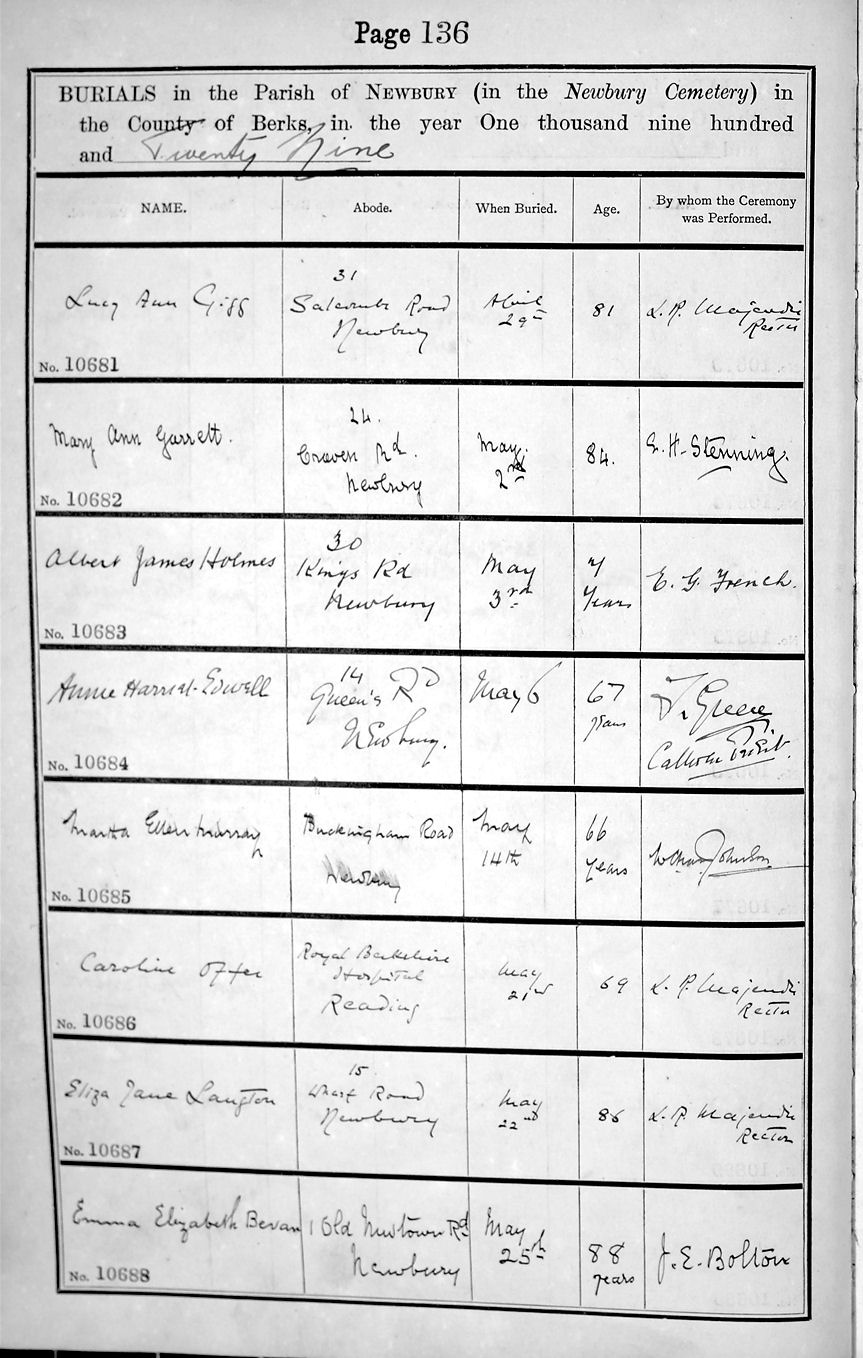 Page 136
BURIALS in the Parish of NEWBURY (in the Newbury Cemetery) in
the County of Berks, in the year One thousand nine hundred
and Twenty Nine
NAME. Abode. When Buried. Age. By whom the Ceremony was Performed.
31
Lucy Ann Gigg Salcombe Road April 81 L. R. Majendie
Newbury 29th Rector
No. 10681
24.
Mary Ann Garrett. Craven Rd. May. 84. E. H. Stenning.
Newbury 2nd
No. 10682
30
Albert James Holmes Kings Rd May E. G. French.
Newbury 3rd Years
No. 10683
14
Annie Harriet Edwell Queen's Rd May 6 67 Greene
Newbury. years Catholic Priest.
No. 10684
Martha Ellen Murray Buckingham Road May 66 Johnson
Newbury 14th years
No. 10685
Royal Berkshire
Caroline Offer Hospital May 69 L. R. Majendie
Reading 21st Rector
No. 10686
15
Eliza Jane Langton Wharf Road May L. R. Majendie
Newbury 22nd Rector
No. 10687
Emma Elizabeth Bevan 1 Old Newtown Rd May 88 J. E. Bolton
Newbury 25th years
No. 10688